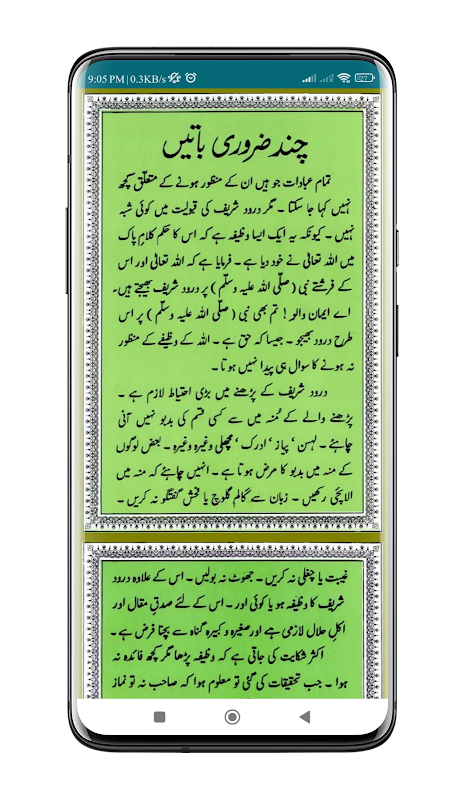 9:05 PM | 0.3KB/s
چند ضروری باتیں
تمام عبادات جو ہیں ان کے منظور ہونے کے متعلق کچھ
نہیں کہا جا سکتا ۔ مگر درود شریف کی قبولیت میں کوئی شبہ
نہیں ۔ کیونکہ یہ ایک ایسا وظیفہ ہے کہ اس کا حکم کلامِ پاک
میں اللہ تعالیٰ نے خود دیا ہے ۔ فرمایا ہے کہ اللہ تعالیٰ اور اس
کے فرشتے نبی ( صلّی اللہ علیہ وسلّم ) پر درود شریف بھیجتے ہیں۔
اے ایمان والو ! تم بھی نبی ( صلّی اللہ علیہ وسلّم ) پر اس
طرح درود بھیجو ۔ جیسا کہ حق ہے ۔ اللہ کے وظیفے کے منظور
نہ ہونے کا سوال ہی پیدا نہیں ہوتا ۔
درود شریف کے پڑھنے میں بڑی احتیاط لازم ہے ۔
پڑھنے والے کے مُنہ میں سے کسی قسم کی بدبو نہیں آنی
چاہئے ۔ لہسن ‘ پیاز ‘ ادرک ‘ مچھلی وغیرہ وغیرہ ۔ بعض لوگوں
کے منہ میں بدبو کا مرض ہوتا ہے ۔ انہیں چاہئے کہ منہ میں
الائچی رکھیں ۔ زبان سے گالم گلوچ یا فحش گفتگو نہ کریں ۔
غیبت یا چغلی نہ کریں ۔ جھوٹ نہ بولیں ۔ اس کے علاوہ درود
شریف کا وظیفہ ہو یا کوئی اور ۔ اس کے لئے صدقِ مقال اور
اکلِ حلال لازمی ہے اور صغیرہ و کبیرہ گناہ سے بچنا فرض ہے ۔
اکثر شکایت کی جاتی ہے کہ وظیفہ پڑھا مگر کچھ فائدہ نہ
ہوا ۔ جب تحقیقات کی گئی تو معلوم ہوا کہ صاحب نہ تو نماز